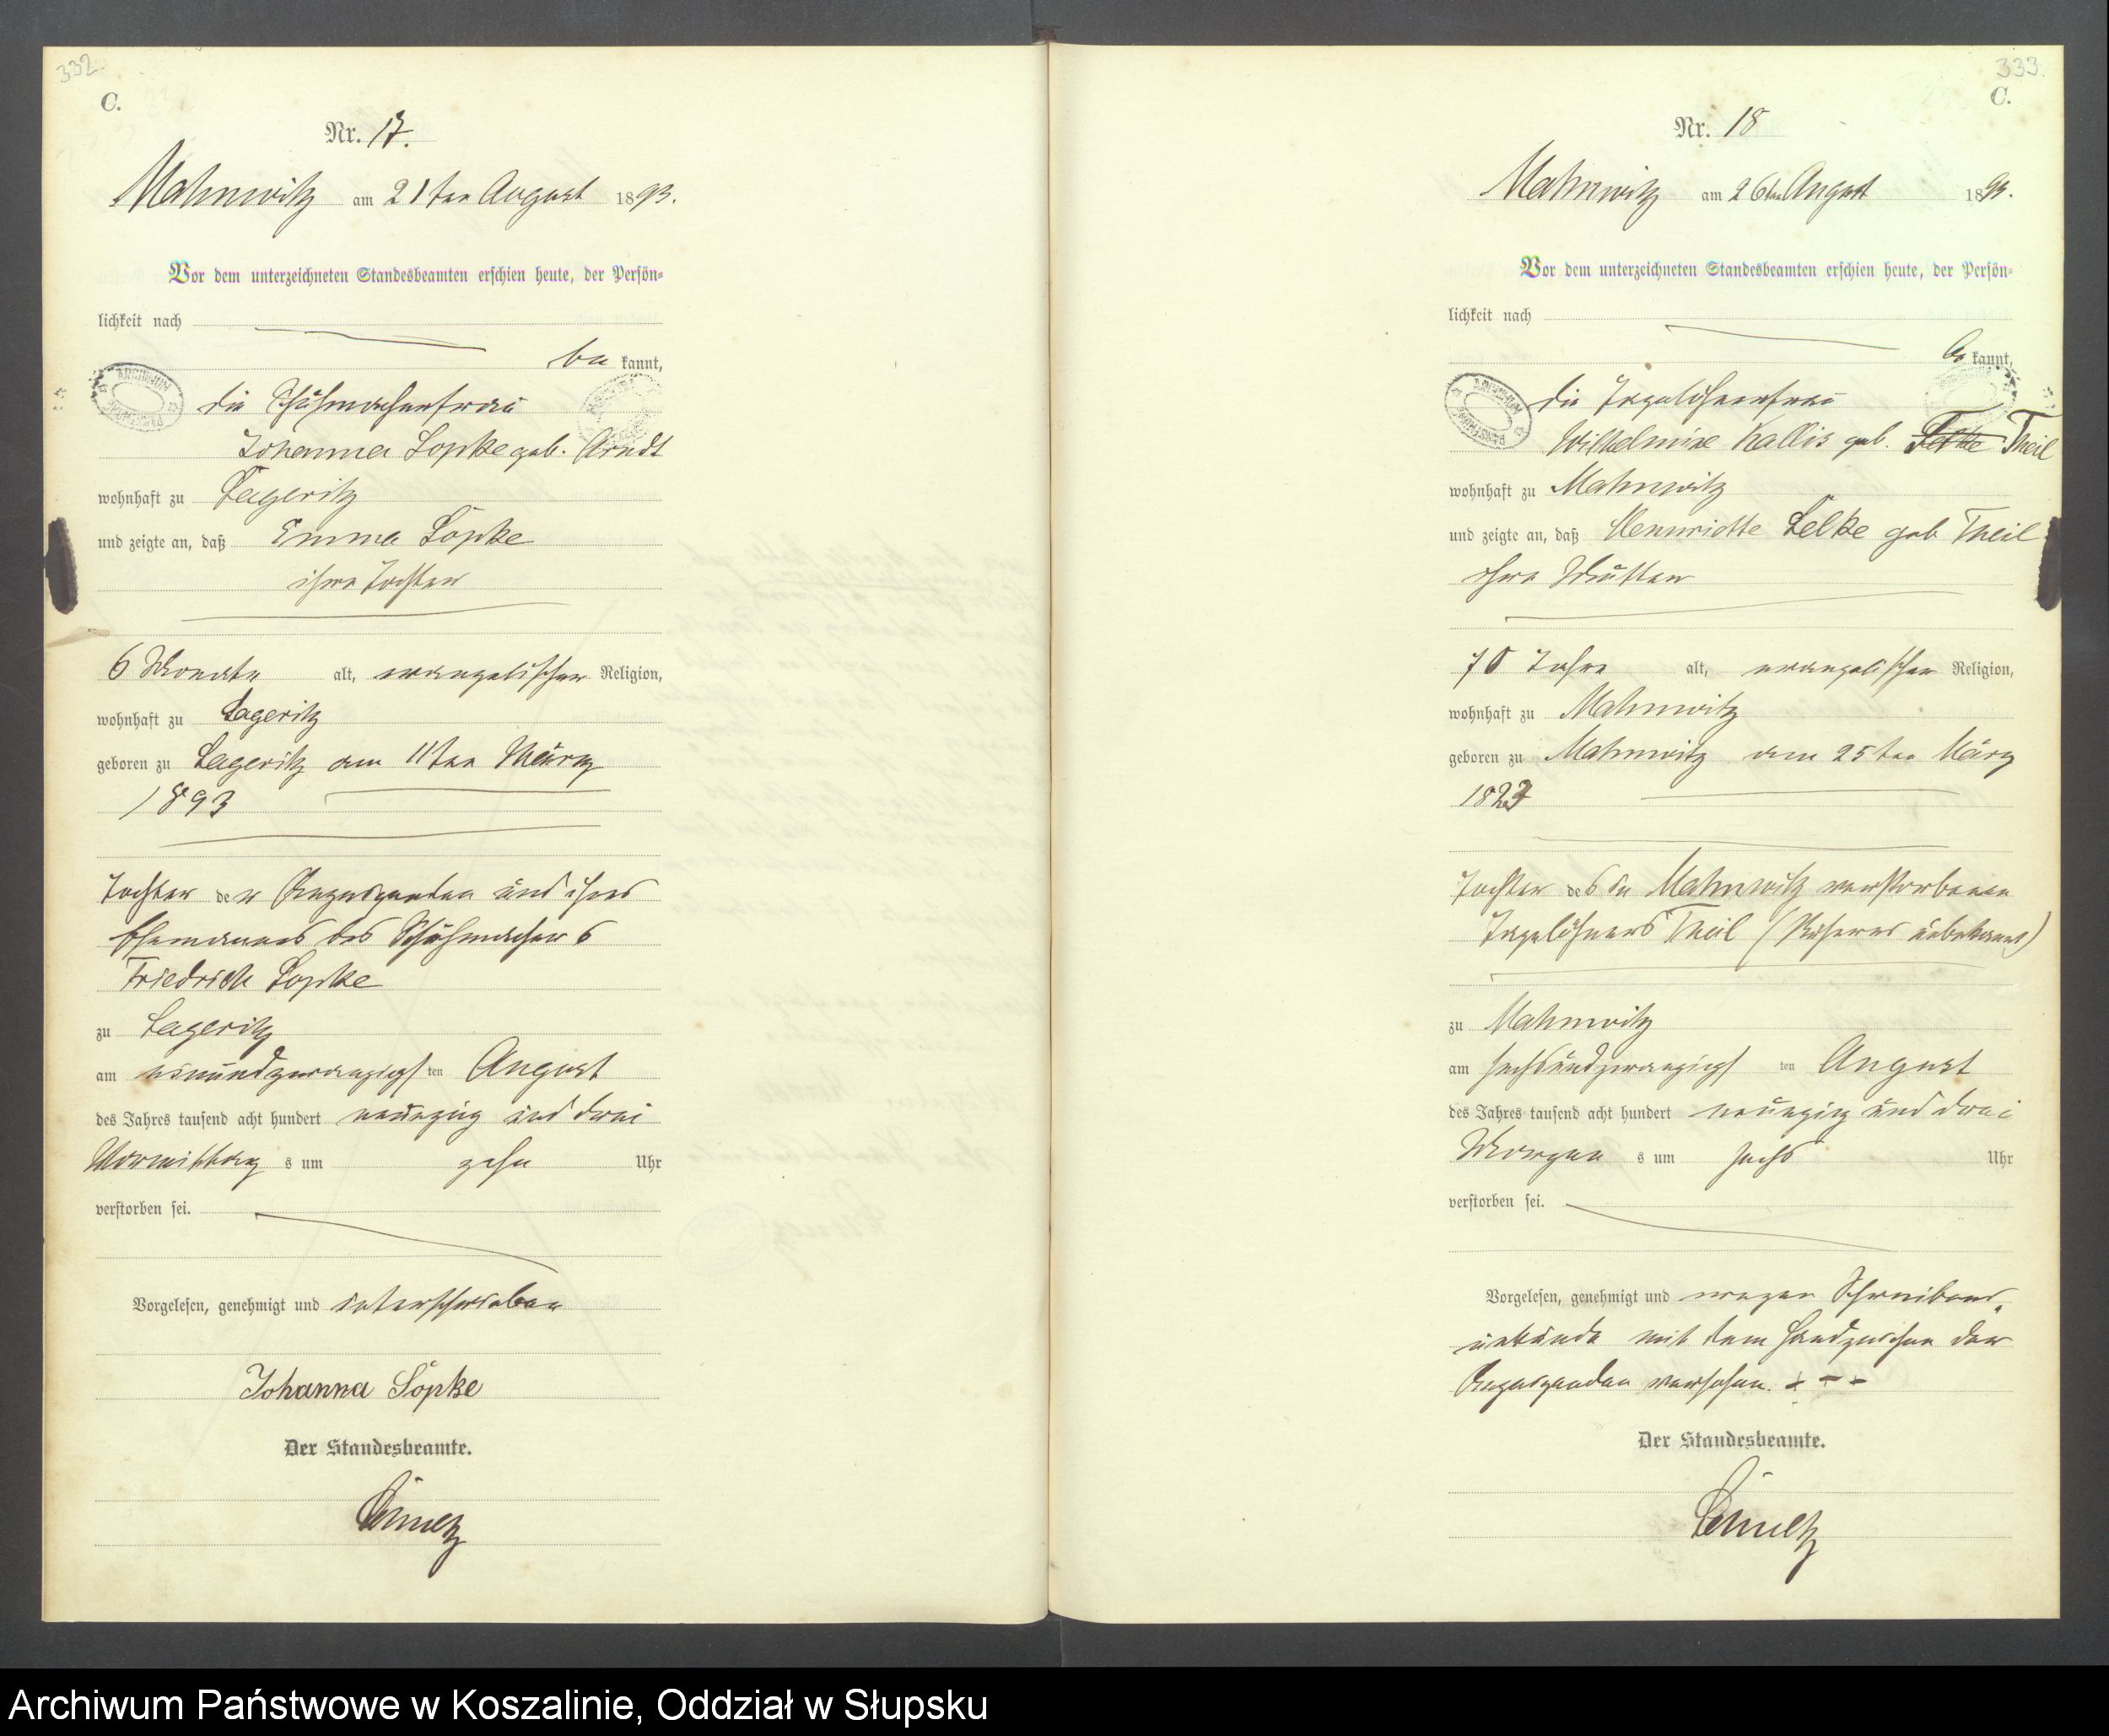 332.
C.
Nr. 17.
Mahnwitz am 21ten August 1893.
Vor dem unterzeichneten Standesbeamten erschien heute, der Persön-
lichkeit nach
be kannt,
die Schuhmacherfrau
Johanna Löpke geb. Arndt
wohnhaft zu Lageritz
und zeigte an, daß Emma Löpke
ihre Tochter
6 Monate alt, evangelischer Religion,
wohnhaft zu Lageritz
geboren zu Lageritz am 11ten März
1893
Tochter der Anzeigenden und ihres
Ehemannes des Schuhmachers
Friedrich Löpke
zu Lageritz
am einundzwanzigsten August
des Jahres tausend acht hundert neunzig und drei
Vormittags um zehn Uhr
verstorben sei.
Vorgelesen, genehmigt und unterschrieben
Johanna Löpke
Der Standesbeamte.
333.
C.
Nr. 18
Mahnwitz am 26ten August 1893.
Vor dem unterzeichneten Standesbeamten erschien heute, der Persön-
lichkeit nach
be kannt,
die Tagelöhnerfrau
Wilhelmine Kallis geb. Theil
wohnhaft zu Mahnwitz
und zeigte an, daß Hennriette Lelke geb Theil
ihre Mutter
70 Jahre alt, evangelischer Religion,
wohnhaft zu Mahnwitz
geboren zu Mahnwitz am 25ten März
1823
Tochter des zu Mahnwitz verstorbenen
Tagelöhners Theil (Näheres unbekannt)
zu Mahnwitz
am sechsundzwanzigsten August
des Jahres tausend acht hundert neunzig und drei
Morgens um sechs Uhr
verstorben sei.
Vorgelesen, genehmigt und wegen Schreibens
unkunde mit dem Handzeichen der
Anzeigenden versehen. + - -
Der Standesbeamte.
Archiwum Państwowe w Koszalinie, Oddział w Słupsku